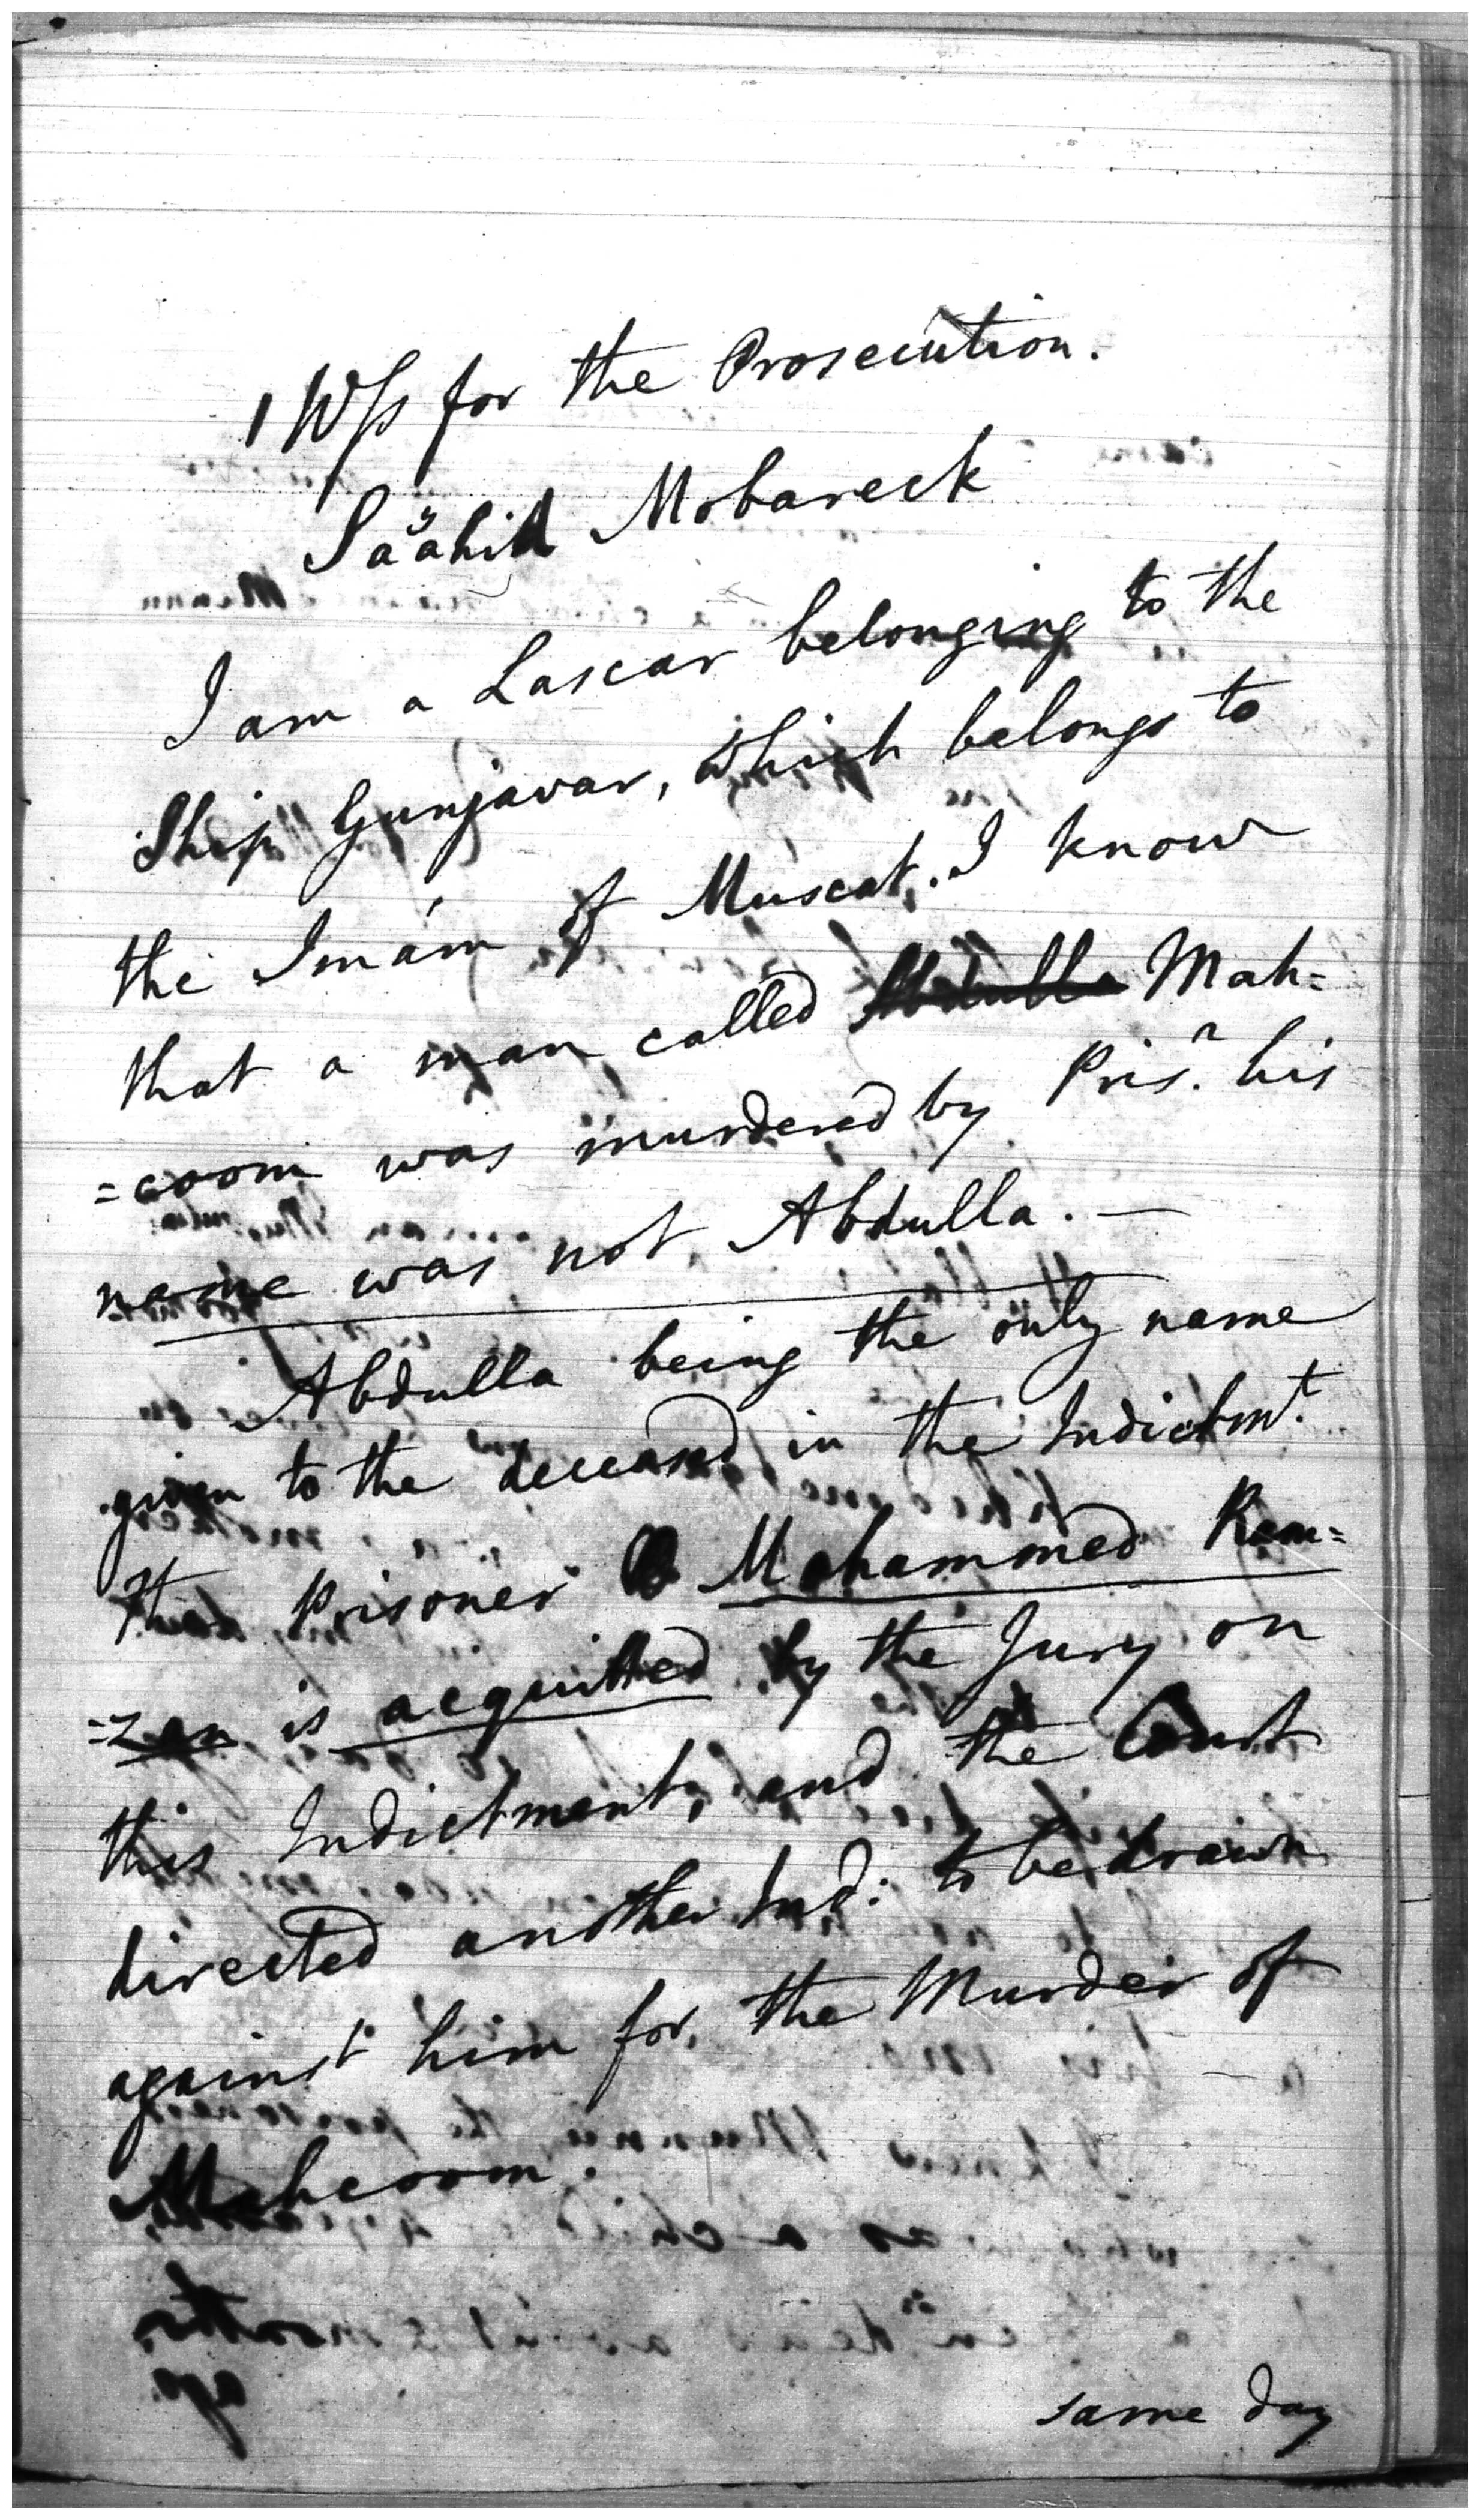 1 Wss for the Prosecution.
Saahid Mobareck
I am a Lascar belonging to the
Ship Gunjavar, which belongs to
the Imám of Muscat. I know
that a man called Abdulla Mah=
=coom was murdered by Pris.r his
name was not Abdulla. —
Abdulla being the only name
given to the deceased in the Indictm.t
The Prisoner Mohammed Ram=
=zan is acquitted by the Jury on
this Indictment, and the Court
directed another Ind: to be drawn
against him for the Murder of
Mahcoom.
same day